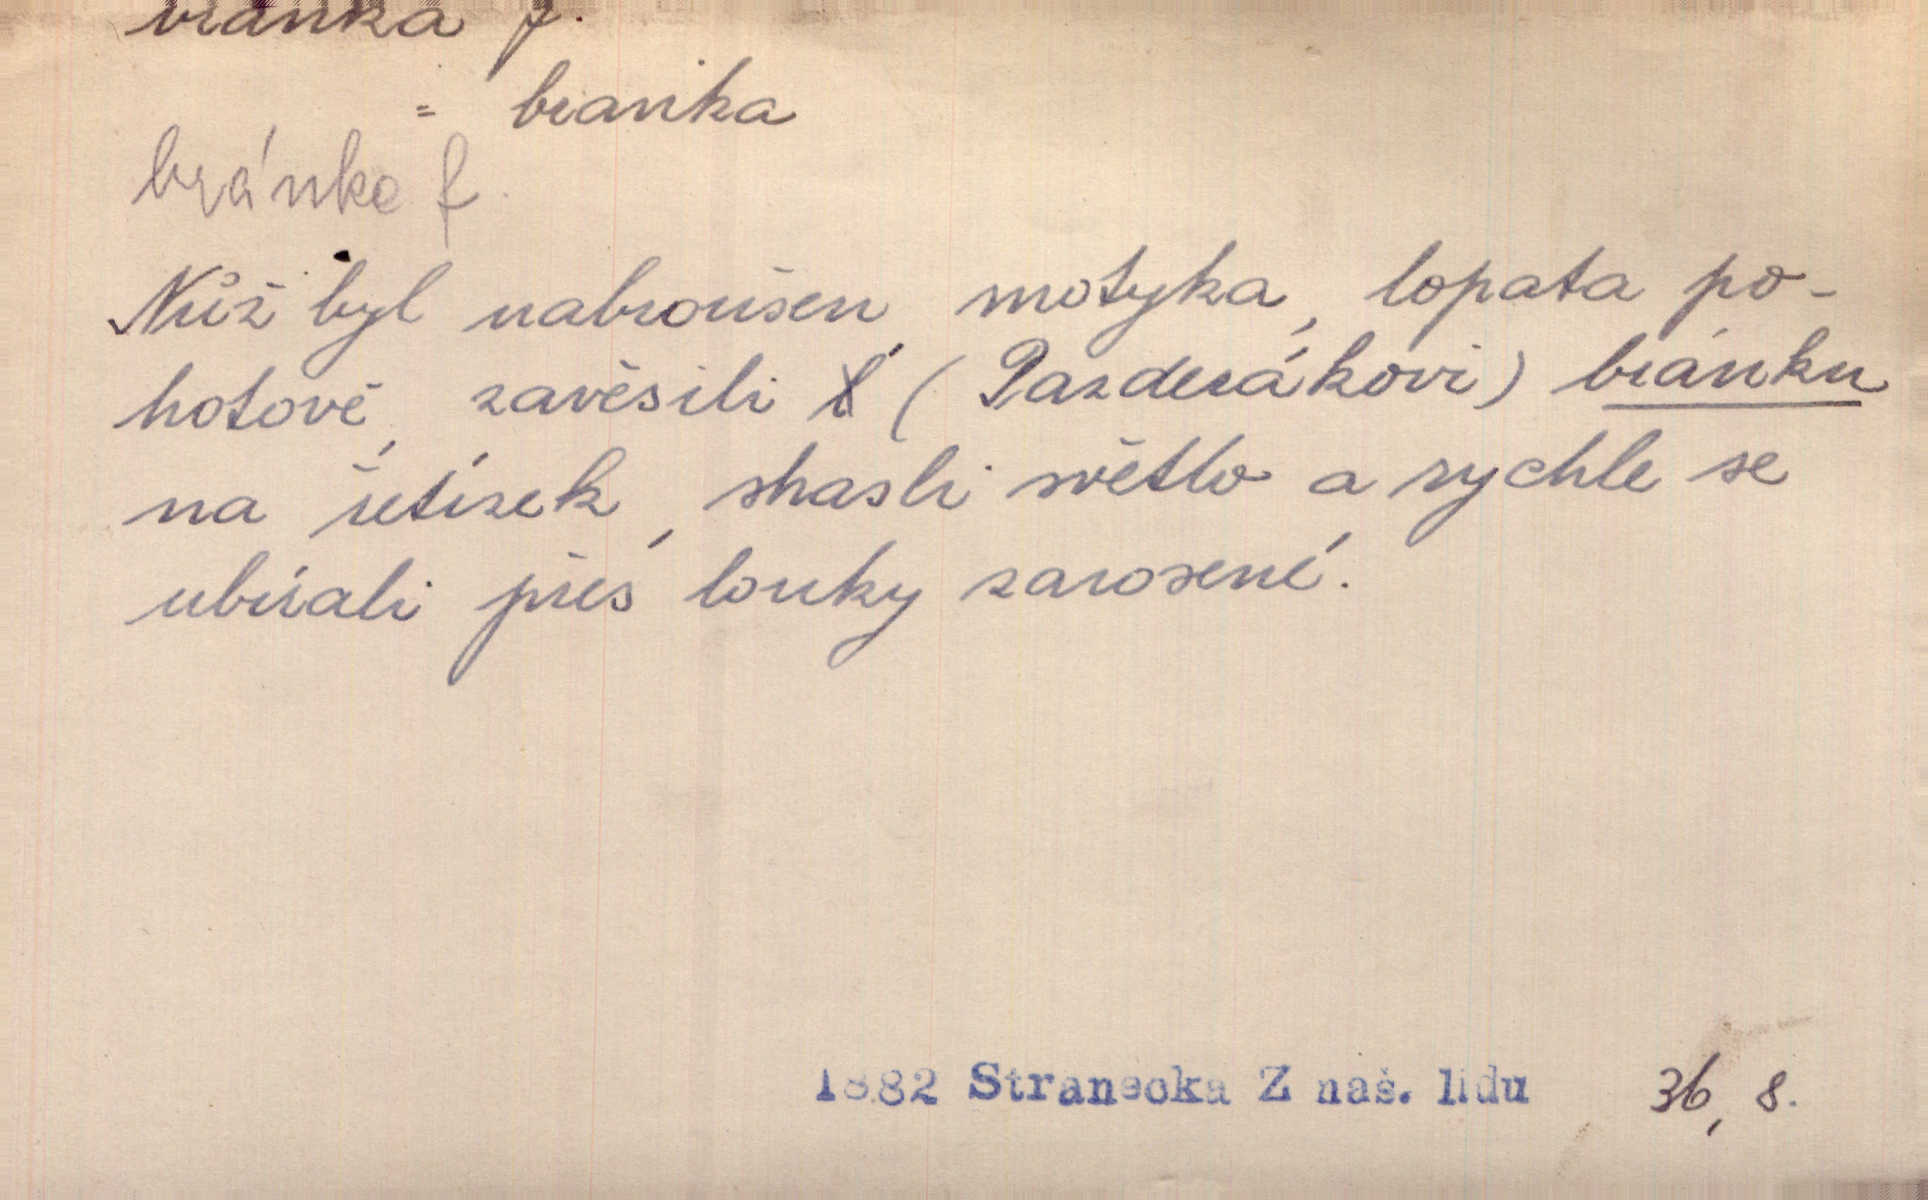 bránka f.
= branka
bránka f.
Nůž byl nabroušen, motyka, lopata po-
hotově, zavěsili (Pazderákovi) bránku
na řetízek, shasli světlo a rychle se
ubírali přes louky zarosené.
1882 Stranecka Z naš. lidu 36, 8.